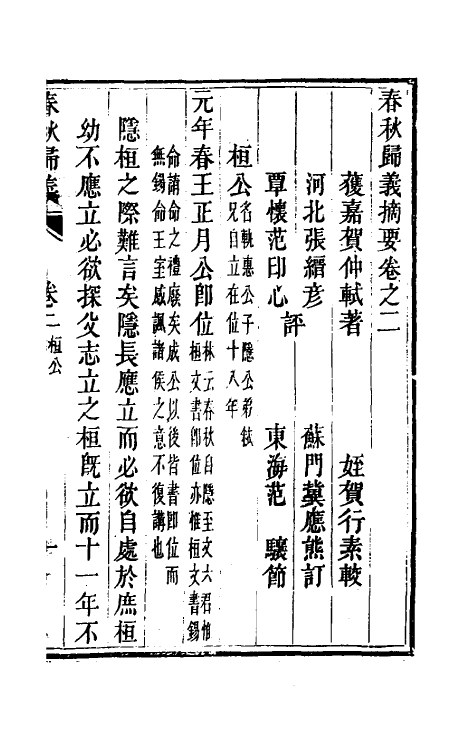 春秋歸義摘要卷之二
獲嘉賀仲軾著 姪賀行素較
河北張縉彥 蘇門冀應熊訂
覃懷范印心評 東海范驤節
桓公名軌惠公子隱公弟弒
兄自立在位十八年
元年春王正月公卽位林云春秋自隱至文六君惟
桓文書卽位亦惟桓文書錫
命誦命之禮廢矣成公以後皆書卽位而
無錫命王室威諷諸侯之意不復講也
隱桓之際難言矣隱長應立而必欲自處於庶桓
幼不應立必欲探父志立之桓旣立而十一年不
春秋歸義 卷二 桓公 一